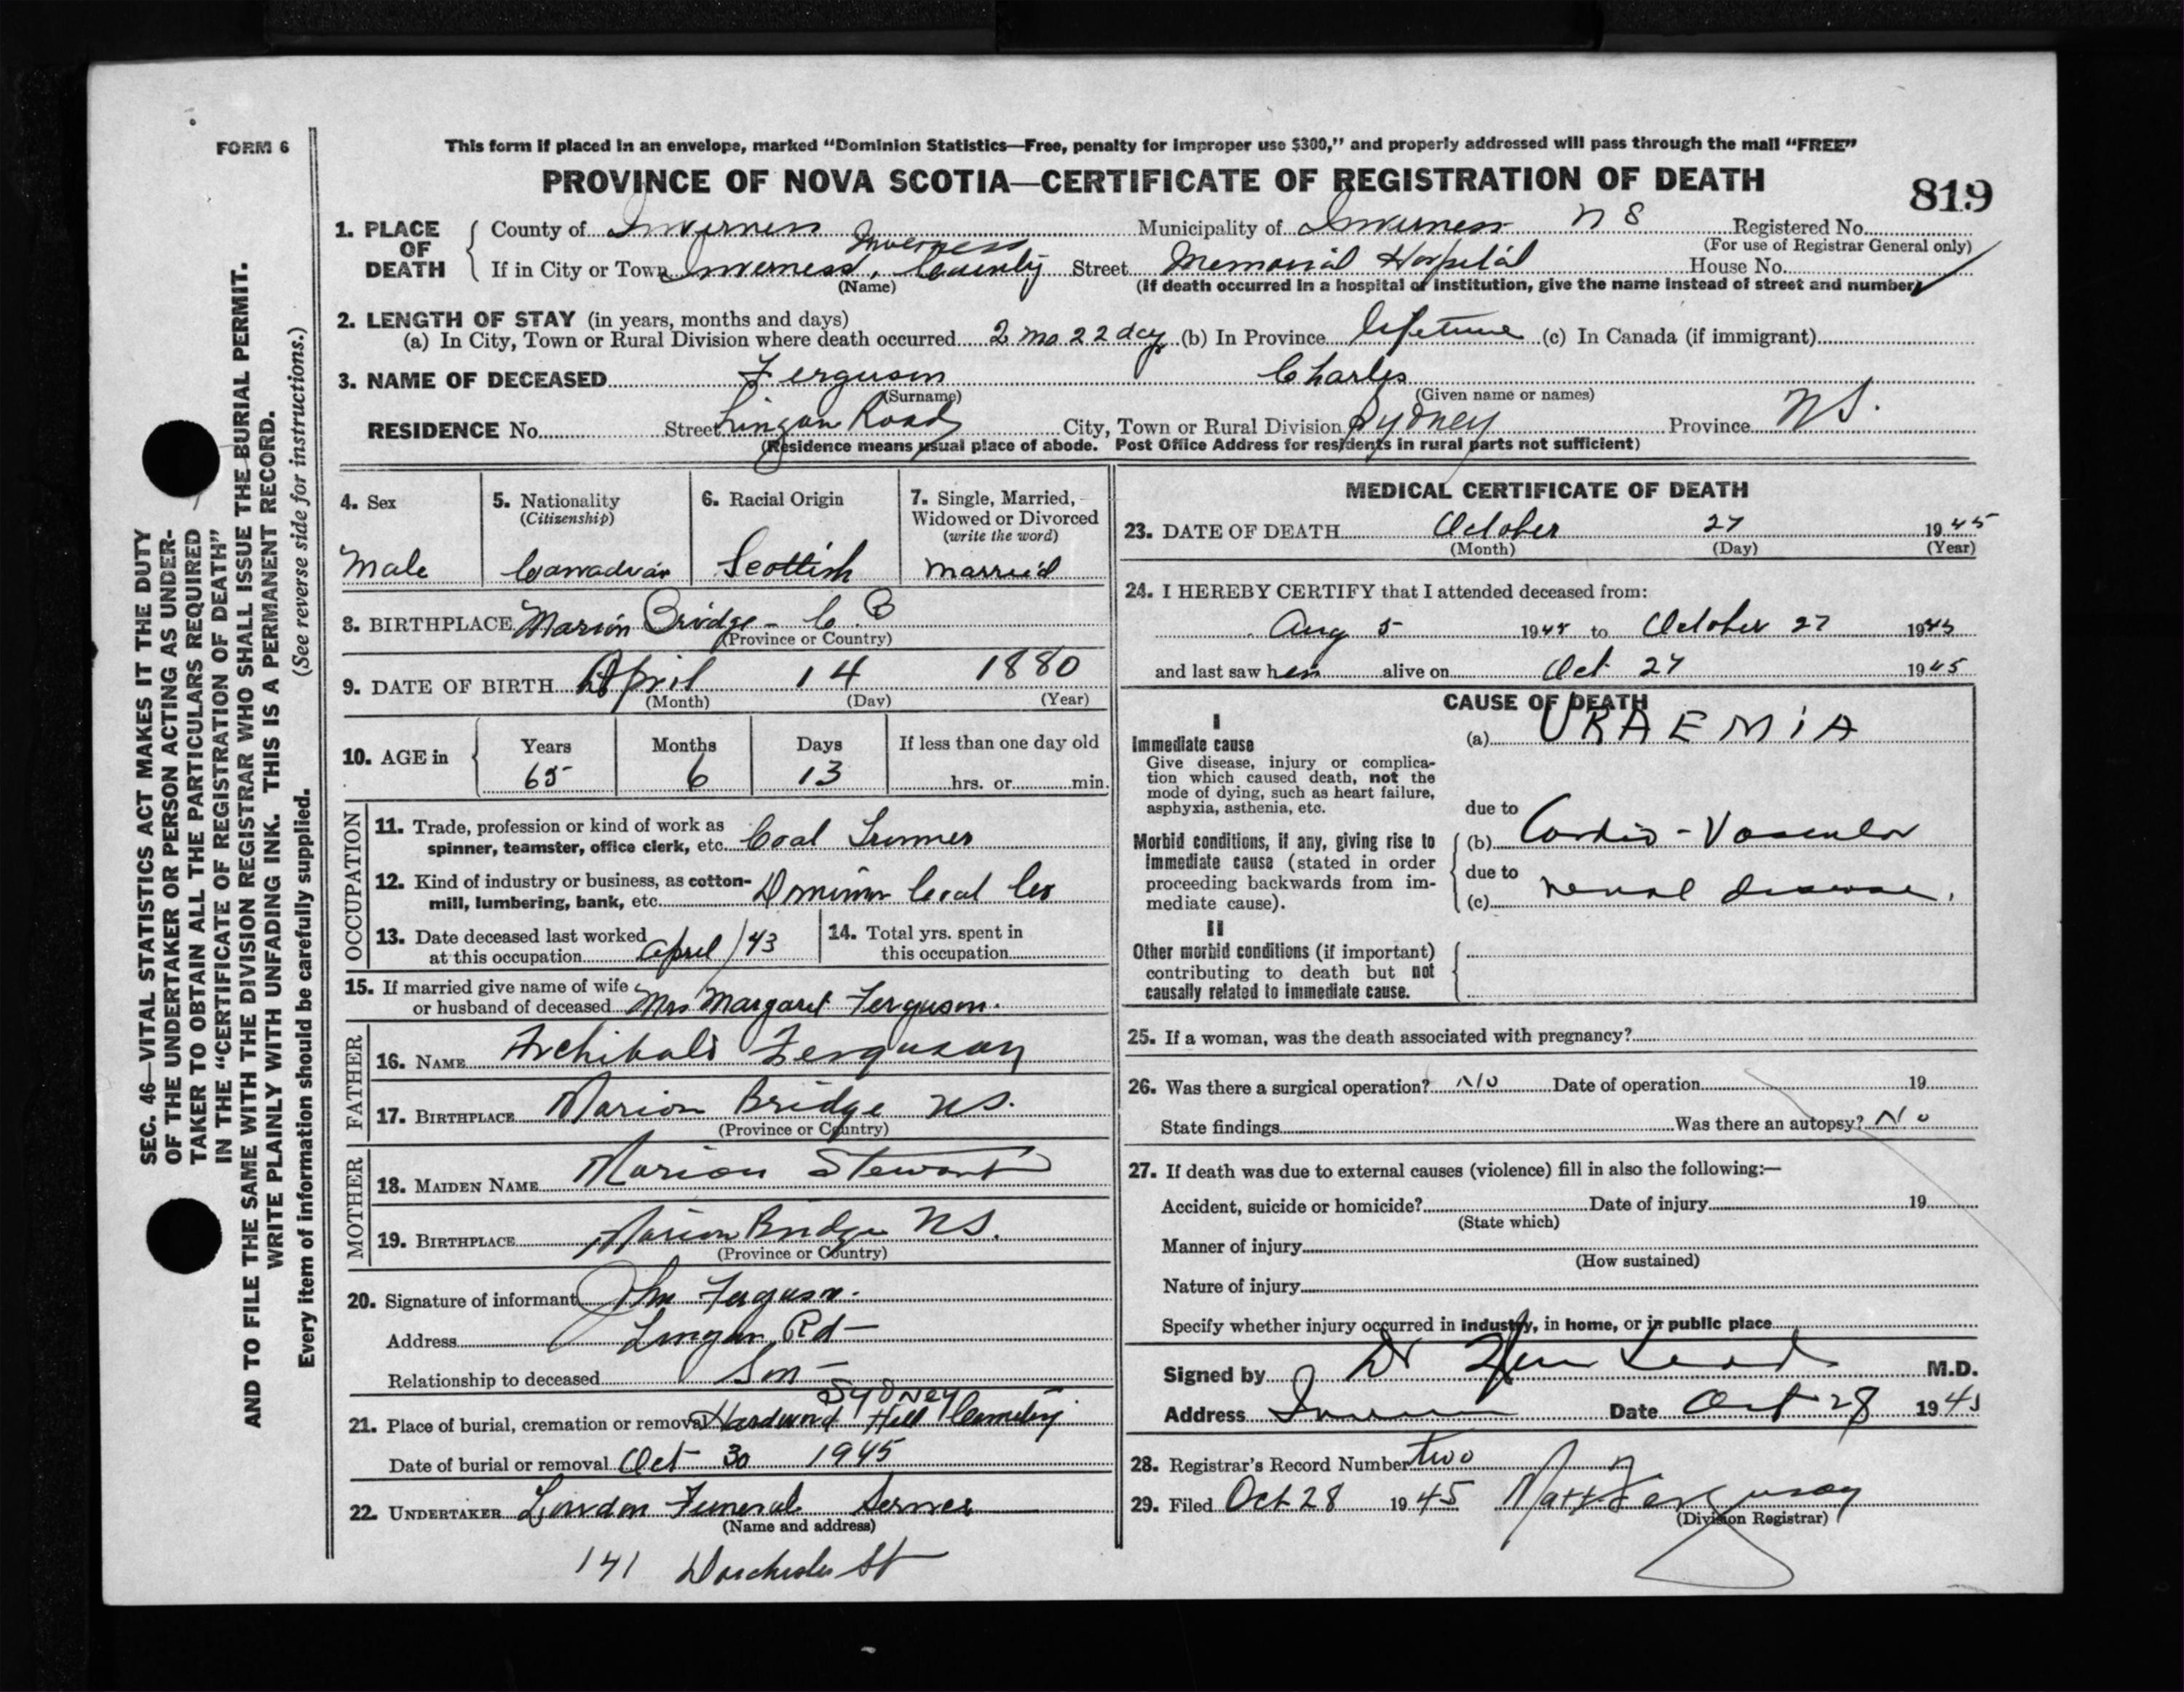 FORM 6
This form if placed in an envelope, marked “Dominion Statistics—Free, penalty for improper use $300,” and properly addressed will pass through the mail “FREE”
PROVINCE OF NOVA SCOTIA—CERTIFICATE OF REGISTRATION OF DEATH
819
1. PLACE OF DEATH
County of Inverness Municipality of Inverness N S Registered No.
(For use of Registrar General only)
Inverness
If in City or Town Inverness, County Street Memorial Hospital House No.
(Name) (If death occurred in a hospital or institution, give the name instead of street and number)
2. LENGTH OF STAY (in years, months and days)
(a) In City, Town or Rural Division where death occurred 2 mo 22 day (b) In Province lifetime (c) In Canada (if immigrant)
3. NAME OF DECEASED Ferguson Charles
(Surname) (Given name or names)
RESIDENCE No. Street Lingan Road City, Town or Rural Division Sydney Province N.S.
(Residence means usual place of abode. Post Office Address for residents in rural parts not sufficient)
4. Sex
Male
5. Nationality
(Citizenship)
Canadian
6. Racial Origin
Scottish
7. Single, Married,
Widowed or Divorced
(write the word)
Married
8. BIRTHPLACE Marion Bridge - C. B
(Province or Country)
9. DATE OF BIRTH April 14 1880
(Month) (Day) (Year)
10. AGE in
Years Months Days If less than one day old
65 6 13 hrs. or min.
OCCUPATION
11. Trade, profession or kind of work as
spinner, teamster, office clerk, etc. Coal
12. Kind of industry or business, as cotton-
mill, lumbering, bank, etc. Dominion Coal Co
13. Date deceased last worked
at this occupation April /43
14. Total yrs. spent in
this occupation
15. If married give name of wife
or husband of deceased Mrs Margaret Ferguson.
FATHER
16. NAME Archibald Ferguson
17. BIRTHPLACE Marion Bridge NS.
(Province or Country)
MOTHER
18. MAIDEN NAME Marion Stewart
19. BIRTHPLACE Marion Bridge NS.
(Province or Country)
20. Signature of informant John Ferguson.
Address Lingan Rd —
Relationship to deceased Son —
Sydney
21. Place of burial, cremation or removal Hardwood Hill Cemetery
Date of burial or removal Oct 30 1945
22. UNDERTAKER Funeral Service
(Name and address)
141 Dorchester St
MEDICAL CERTIFICATE OF DEATH
23. DATE OF DEATH October 27 1945
(Month) (Day) (Year)
24. I HEREBY CERTIFY that I attended deceased from:
Aug 5 1945 to October 27 1945
and last saw him alive on Oct 27 1945
CAUSE OF DEATH
I
Immediate cause
Give disease, injury or complica-
tion which caused death, not the
mode of dying, such as heart failure,
asphyxia, asthenia, etc.
(a) URAEMIA
due to
Morbid conditions, if any, giving rise to
immediate cause (stated in order
proceeding backwards from im-
mediate cause).
(b) Cardio - Vascular
due to
(c) renal disease,
II
Other morbid conditions (if important)
contributing to death but not
causally related to immediate cause.
25. If a woman, was the death associated with pregnancy?
26. Was there a surgical operation? No Date of operation 19
State findings Was there an autopsy? No
27. If death was due to external causes (violence) fill in also the following:—
Accident, suicide or homicide? Date of injury 19
(State which)
Manner of injury
(How sustained)
Nature of injury
Specify whether injury occurred in industry, in home, or in public place
Signed by Dr M.D.
Address Date Oct 28 1945
28. Registrar's Record Number two
29. Filed Oct 28 1945 Ferguson
(Division Registrar)
SEC. 46—VITAL STATISTICS ACT MAKES IT THE DUTY
OF THE UNDERTAKER OR PERSON ACTING AS UNDER-
TAKER TO OBTAIN ALL THE PARTICULARS REQUIRED
IN THE “CERTIFICATE OF REGISTRATION OF DEATH”
AND TO FILE THE SAME WITH THE DIVISION REGISTRAR WHO SHALL ISSUE THE BURIAL PERMIT.
WRITE PLAINLY WITH UNFADING INK. THIS IS A PERMANENT RECORD.
Every item of information should be carefully supplied. (See reverse side for instructions.)